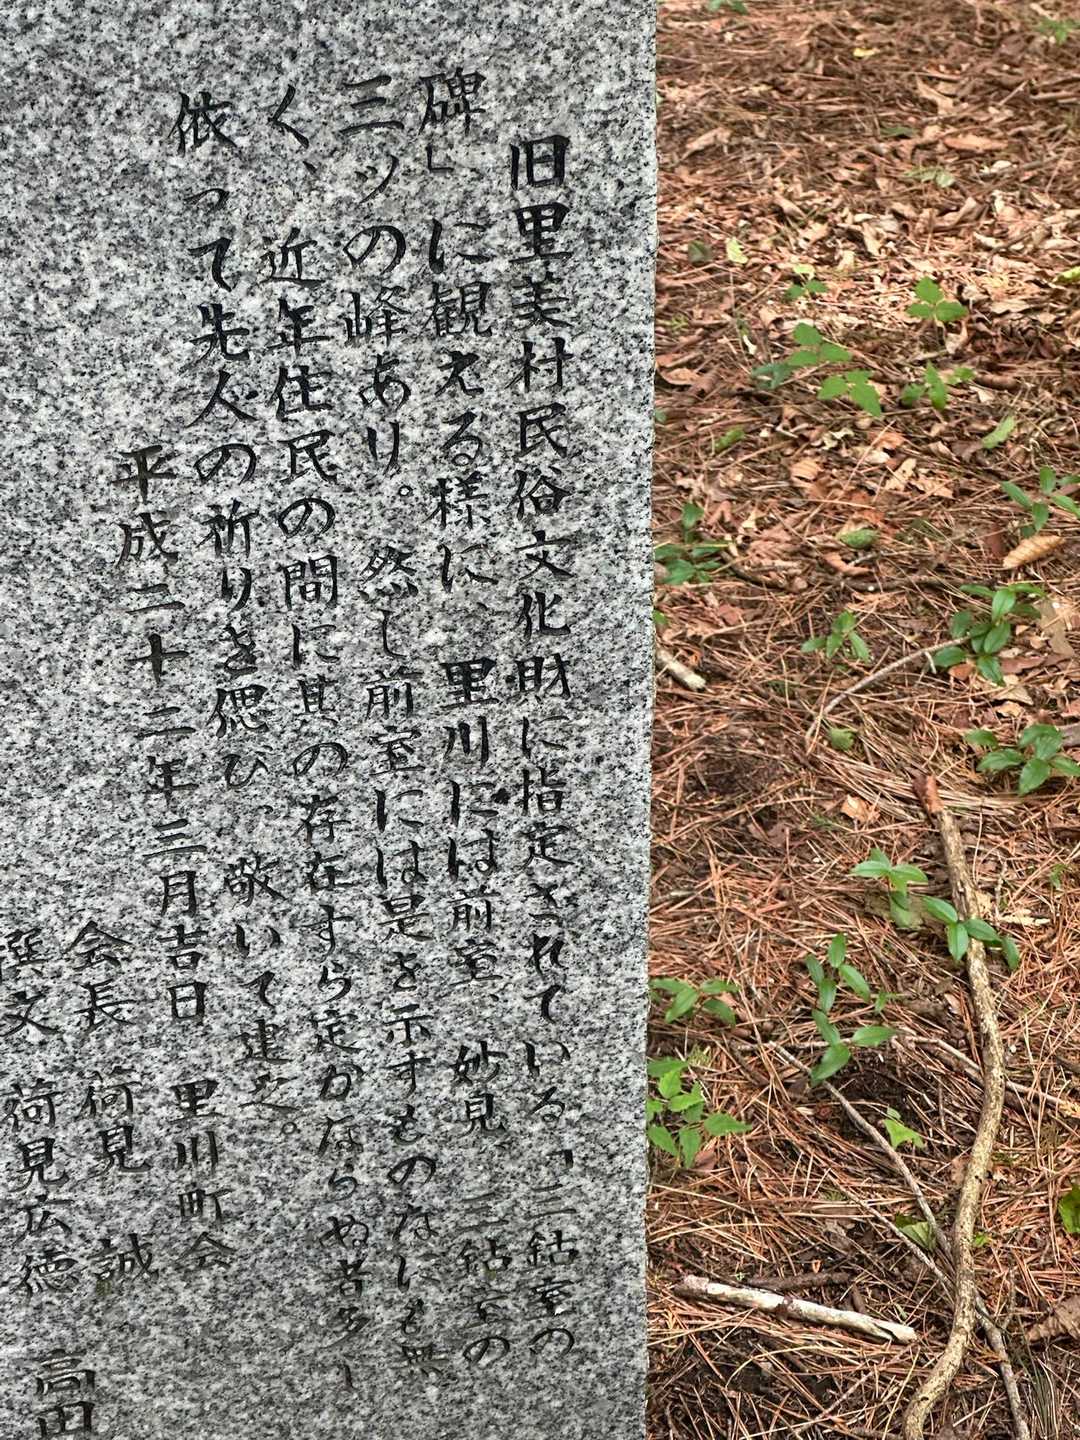 旧里美村民俗文化財に指定されている「三鈷室の
碑」に観える様に、里川には前室、妙見、三鈷室の
三ッの峰あり。然し前室には是を示すものなにも無
く、近年住民の間に其の存在すら定かならぬ者多し
依って先人の祈りを偲び、敬いて建之。
平成二十二年三月吉日 里川町会
会長 荷見 誠
撰文 荷見広徳
高田